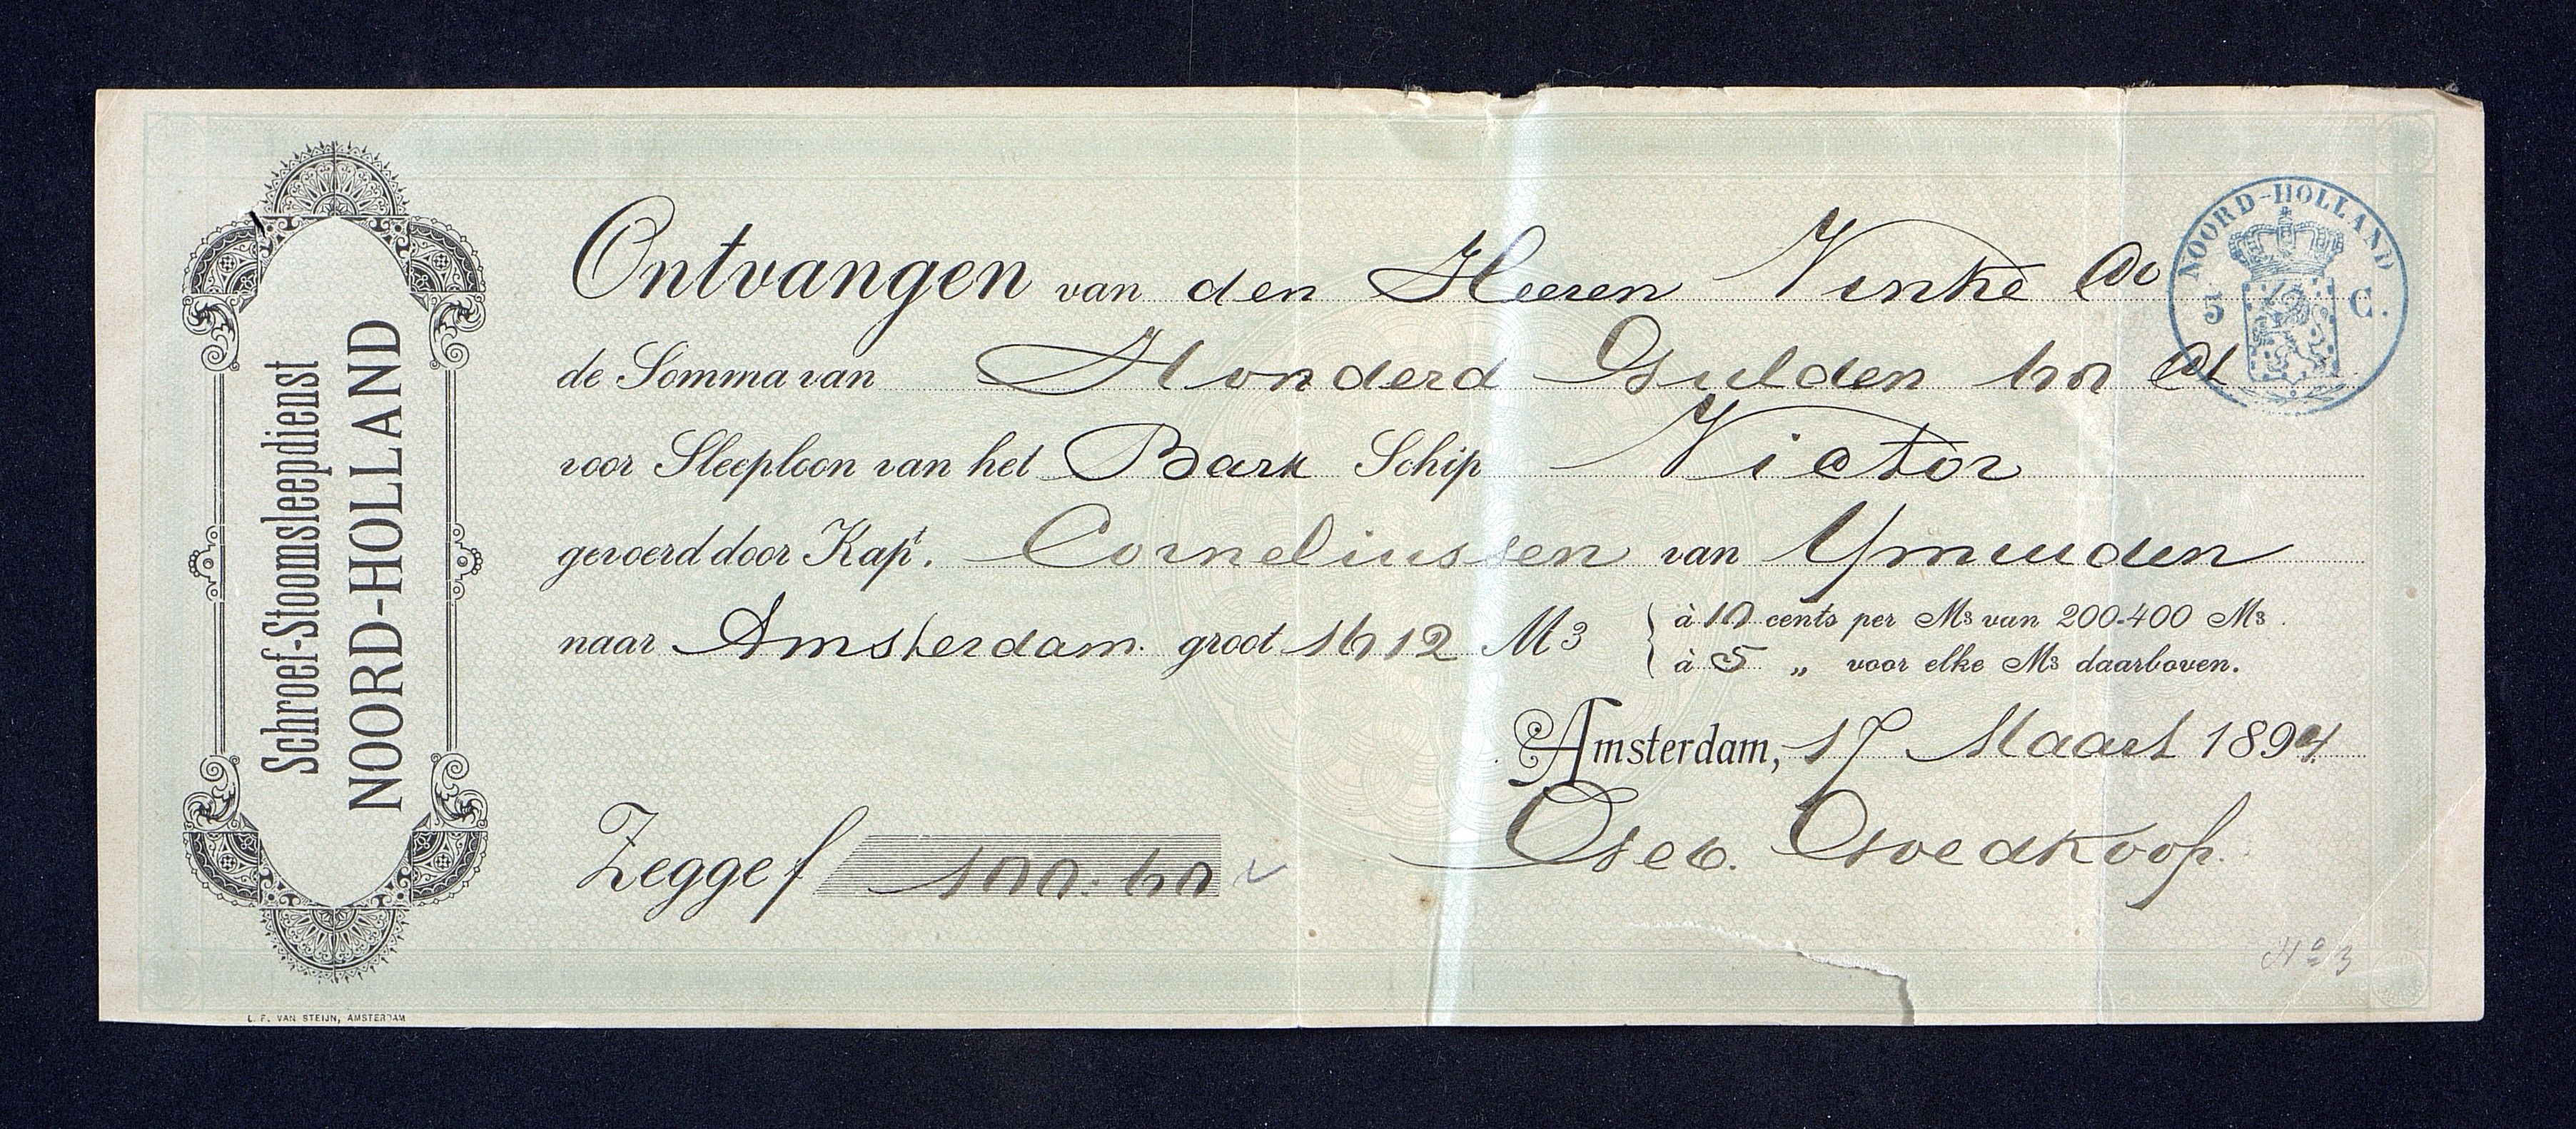 Schroef-Stoomsleepdienst
NOORD-HOLLAND
NOORD-HOLLAND
5 C.
Ontvangen van den Heeren Vinke & Co
de Somma van Honderd Gulden 60 Ct
voor Sleeploon van het Bark Schip Victor
gevoerd door Kapt. Corneliussen van Ymuiden
naar Amsterdam groot 1612 M3 à 10 cents per M3 van 200-400 M3.
à 5 „ voor elke M3 daarboven.
Amsterdam, 17 Maart 1894
Zegge f 100.60
Geb. Goedkoop.
No 3
L. F. VAN STEIJN, AMSTERDAM